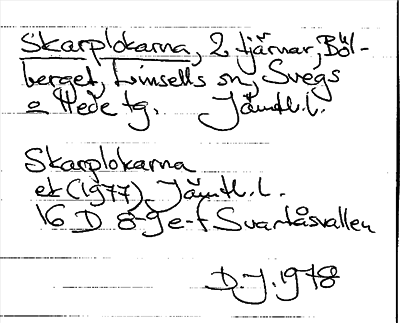 Skarplokarna, 2 tjärnar, Böl-
berget, Linsells sn, Svegs
o Hede tg. Jämtl.l.
Skarplokarna
ek (1977) Jämtl.l.
16 D 8-9 e-f Svartåsvallen
D.J. 1978